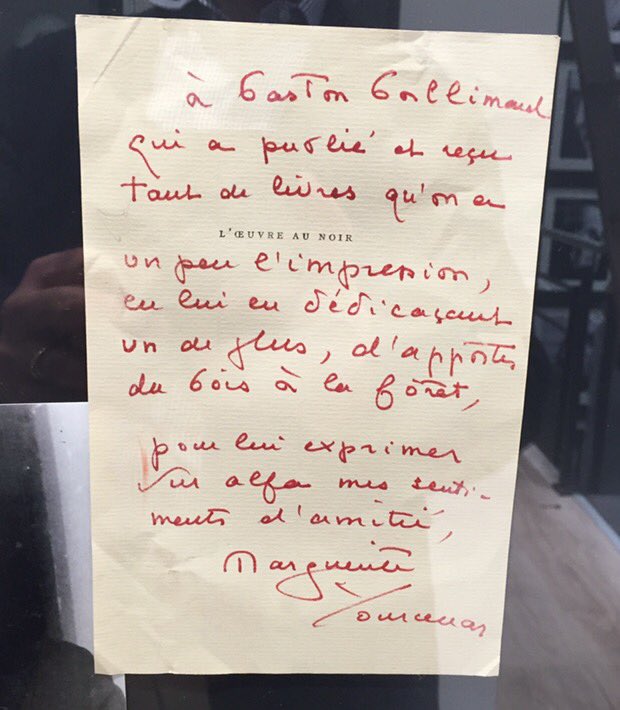 à Gaston Gallimard
qui a publié et reçu
tant de livres qu'on a
L'ŒUVRE AU NOIR
un peu l'impression,
en lui en dédicaçant
un de plus, d'apporter
du bois à la fôret,
pour lui exprimer
sur alfa mes senti-
ments d'amitié,
Marguerite
Yourcenar